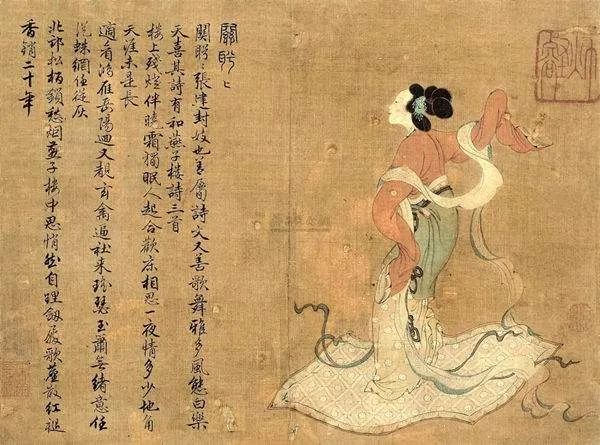 關盻〻
關盻〻張建封妓也善屬詩文又善歌舞雅多風態白樂
天喜其詩有和燕子樓詩三首
樓上殘燈伴曉霜獨眠人起合歡床相思一夜情多少地角
天涯未是長
適看鴻雁岳陽迴又覩玄禽逼社來瑤瑟玉簫無緒意任
從蛛網任從灰
北邙松柏鎖愁烟燕子樓中思悄然自理劍履歌塵散紅袖
香銷二十年